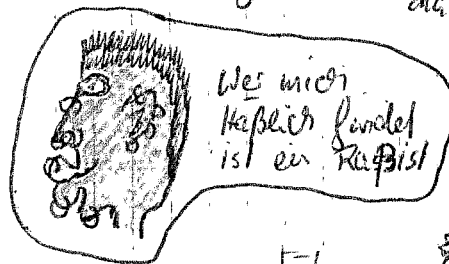 Wer mich
Häßlich findet
ist ein Raßist